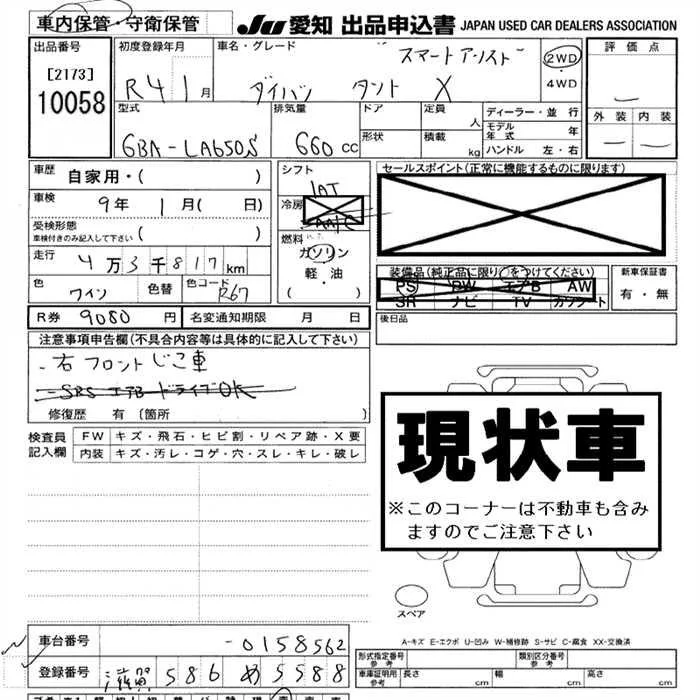 車内保管・守衛保管
JU 愛知 出品申込書 JAPAN USED CAR DEALERS ASSOCIATION
出品番号 [2173] 10058
初度登録年月 R4 1月
車名・グレード スマートアシスト
ダイハツ タント X
2WD・4WD
評価点
外装 内装
型式 6BA-LA650S
排気量 660cc
ドア 形状
定員 人 積載 kg
ディーラー・並行
モデル年式 年
ハンドル 左・右
車歴 自家用・( )
車検 9年 1月( 日)
受検形態 車検付きのみ記入して下さい ( )
走行 4万3千817km
色 ワイン 色替 色コード R67
シフト IAT
冷房
燃料 ガソリン・軽・油 ( )
セールスポイント(正常に機能するものに限ります)
装備品(純正品に限り○をつけてください)
PS PW エアB AW
SR ナビ TV カワシート
新車保証書 有・無
後日品
R券 9080円 名変通知期限 月 日
注意事項申告欄(不具合内容等は具体的に記入して下さい)
・右フロントじこ車
-SRS エアB ドライブOK
修復歴 有 [箇所 ]
検査員記入欄
FW キズ・飛石・ヒビ割・リペア跡・X要
内装 キズ・汚レ・コゲ・穴・スレ・キレ・破レ
現状車
※このコーナーは不動車も含みますのでご注意下さい
スペア
A-キズ E-エクボ U-凹み W-補修跡 S-サビ C-腐食 XX-交換済
車台番号 -0158562
登録番号 586 め 5588
形式指定番号 参考
類別区分番号 参考
車庫証明用 参考 長さ cm 幅 cm 高さ cm